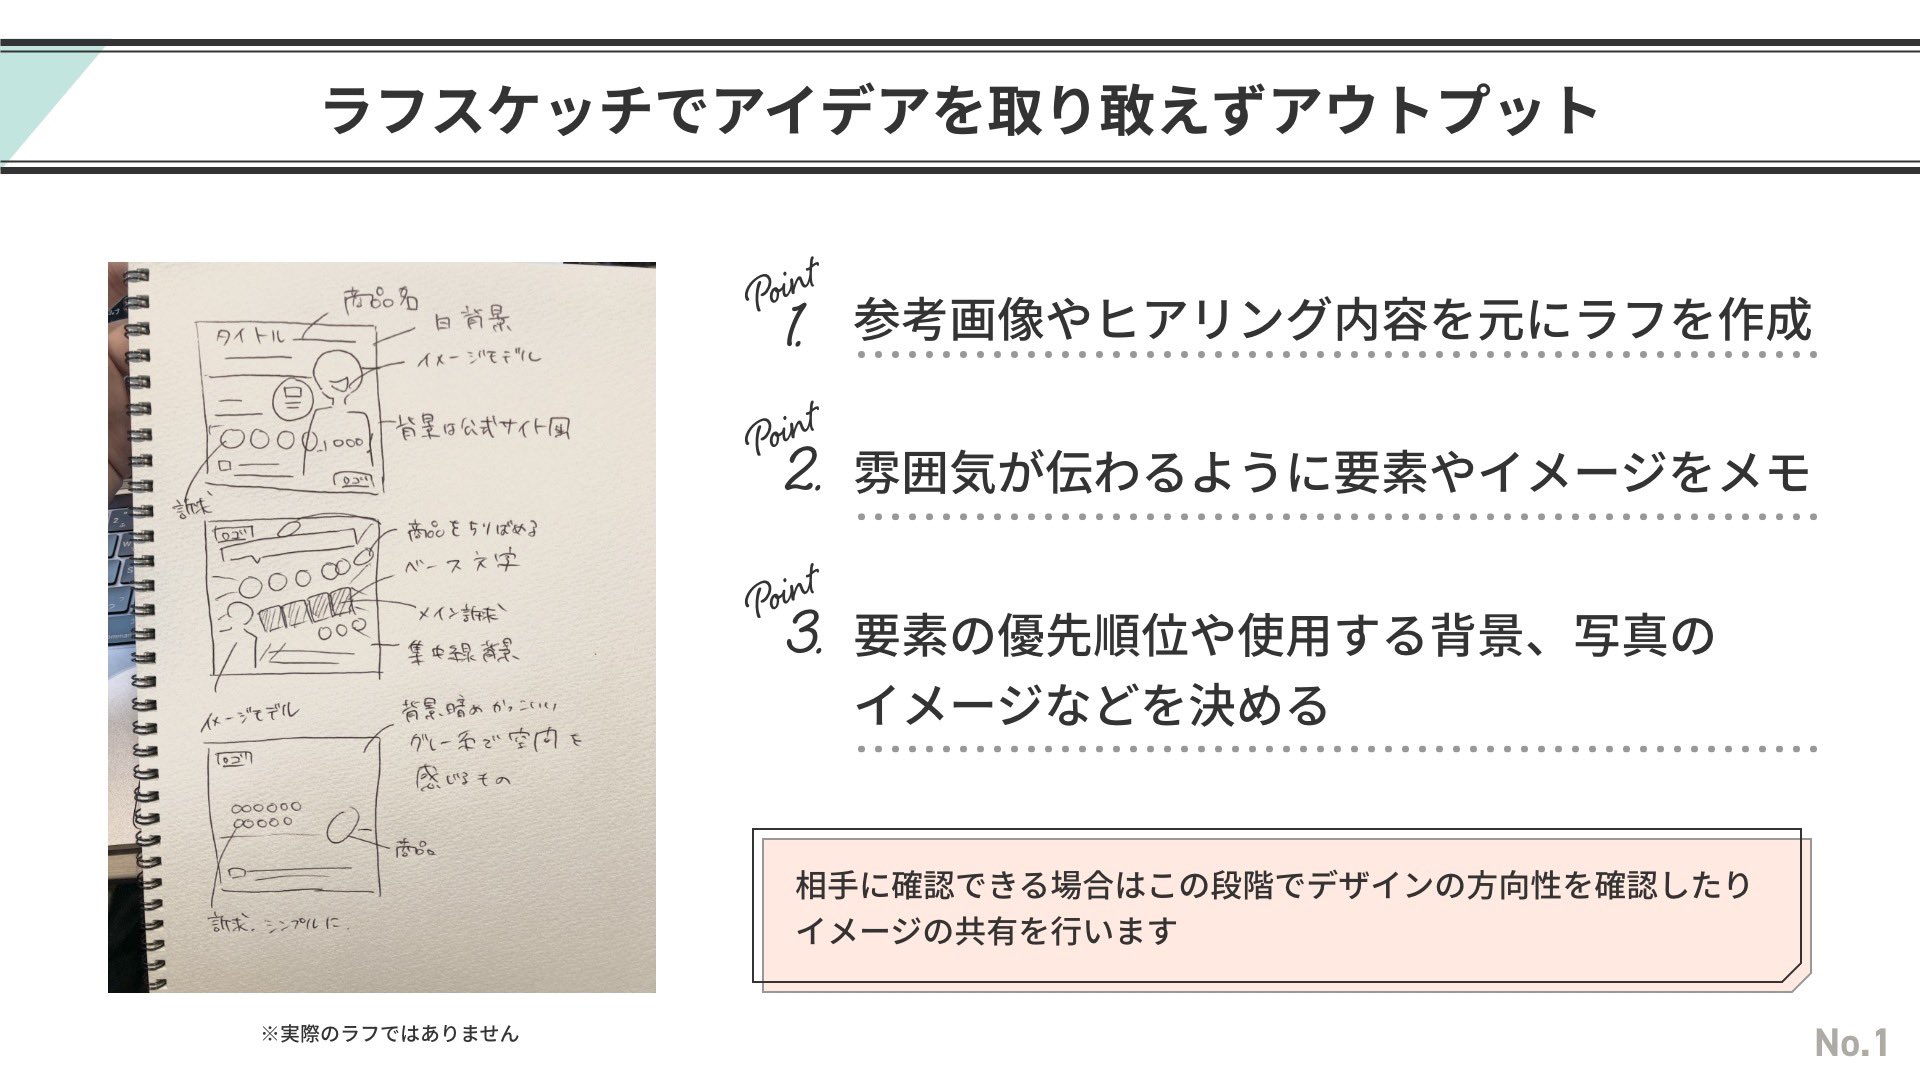 ラフスケッチでアイデアを取り敢えずアウトプット
商品名
タイトル
白背景
イメージモデル
背景は公式サイト風
ロゴ
訴求
ロゴ
商品をちりばめる
ベース文字
メイン訴求
集中線背景
イメージモデル
背景暗めかっこいい
グレー系で空間を
感じるもの
ロゴ
商品
訴求、シンプルに
※実際のラフではありません
Point 1. 参考画像やヒアリング内容を元にラフを作成
Point 2. 雰囲気が伝わるように要素やイメージをメモ
Point 3. 要素の優先順位や使用する背景、写真の
イメージなどを決める
相手に確認できる場合はこの段階でデザインの方向性を確認したり
イメージの共有を行います
No.1